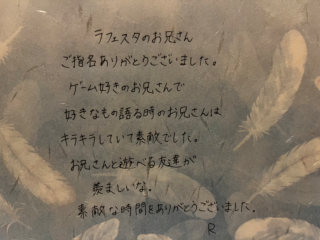 ラフェスタのお兄さん
ご指名ありがとうございました。
ゲーム好きのお兄さんで
好きなもの語る時のお兄さんは
キラキラしていて素敵でした。
お兄さんと遊べる友達が
羨ましいな。
素敵な時間をありがとうございました。
R